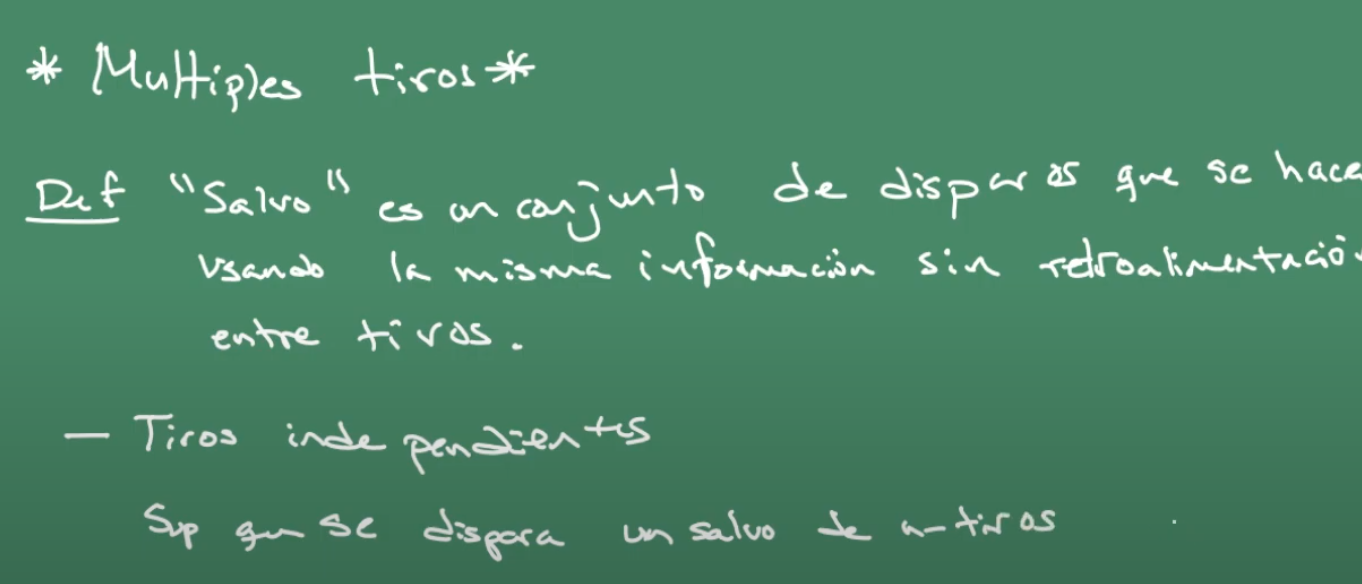 * Multiples tiros *
Def "Salvo" es un conjunto de disparos que se hace
usando la misma información sin retroalimentació
entre tiros.
— Tiros independientes
Sup que se dispara un salvo de n-tiros